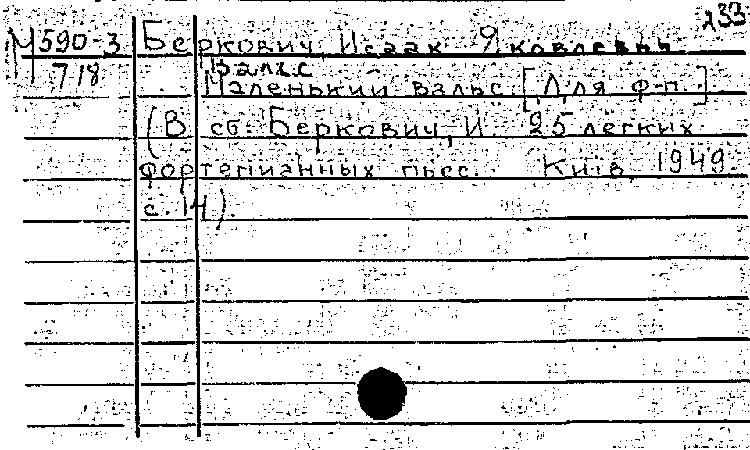 233
М590-3 Беркович, Исаак Яковлевич.
718 Вальс
Маленький вальс. [Для ф-п.]
(В сб.: Беркович, И. 25 легких
фортепианных пьес. Київ, 1949.
с. 14).